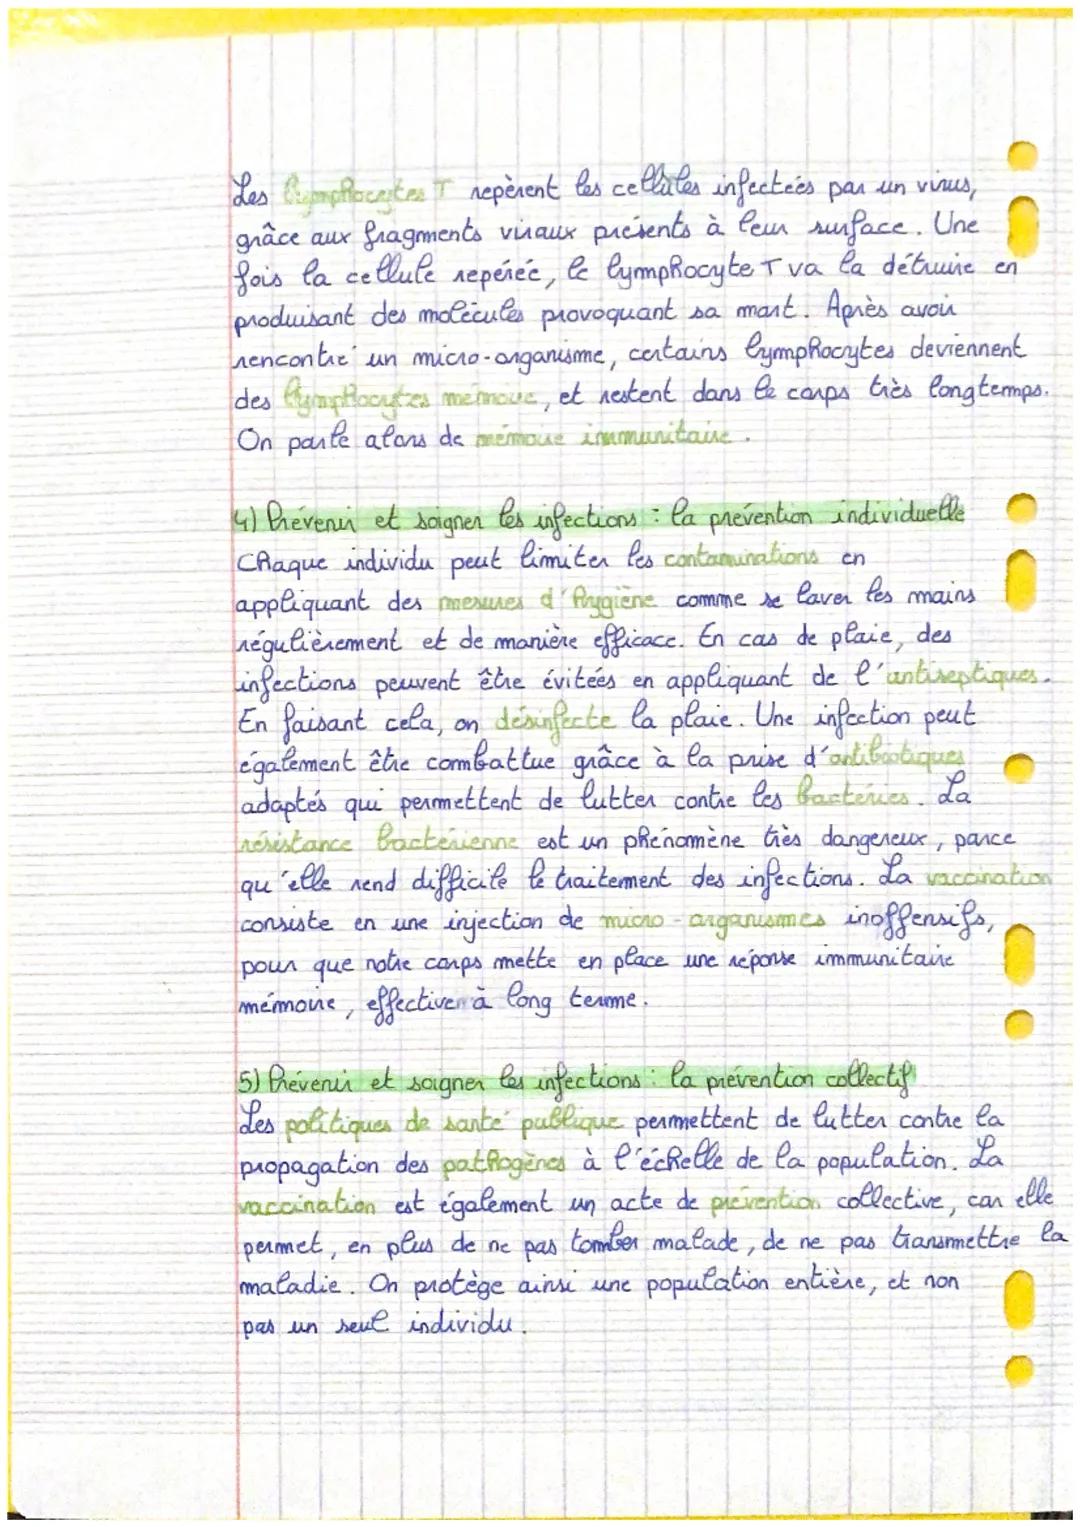 Les lymphocytes T repèrent les cellules infectées par un virus,
grâce aux fragments viraux présents à leur surface. Une
fois la cellule repérée, le lymphocyte T va la détruire en
produisant des molécules provoquant sa mort. Après avoir
rencontré un micro-organisme, certains lymphocytes deviennent
des lymphocytes mémoire, et restent dans le corps très longtemps.
On parle alors de mémoire immunitaire.
4) Prévenir et soigner les infections : la prévention individuelle
Chaque individu peut limiter les contaminations en
appliquant des mesures d'hygiène comme se laver les mains
régulièrement et de manière efficace. En cas de plaie, des
infections peuvent être évitées en appliquant de l'antiseptiques.
En faisant cela, on désinfecte la plaie. Une infection peut
également être combattue grâce à la prise d'antibiotiques
adaptés qui permettent de lutter contre les bactéries. La
résistance bactérienne est un phénomène très dangereux, parce
qu'elle rend difficile le traitement des infections. La vaccination
consiste en une injection de micro-organismes inoffensifs,
pour que notre corps mette en place une réponse immunitaire
mémoire, effective à long terme.
5) Prévenir et soigner les infections : la prévention collectif
Les politiques de santé publique permettent de lutter contre la
propagation des pathogènes à l'échelle de la population. La
vaccination est également un acte de prévention collective, car elle
permet, en plus de ne pas tomber malade, de ne pas transmettre la
maladie. On protège ainsi une population entière, et non
pas un seul individu.